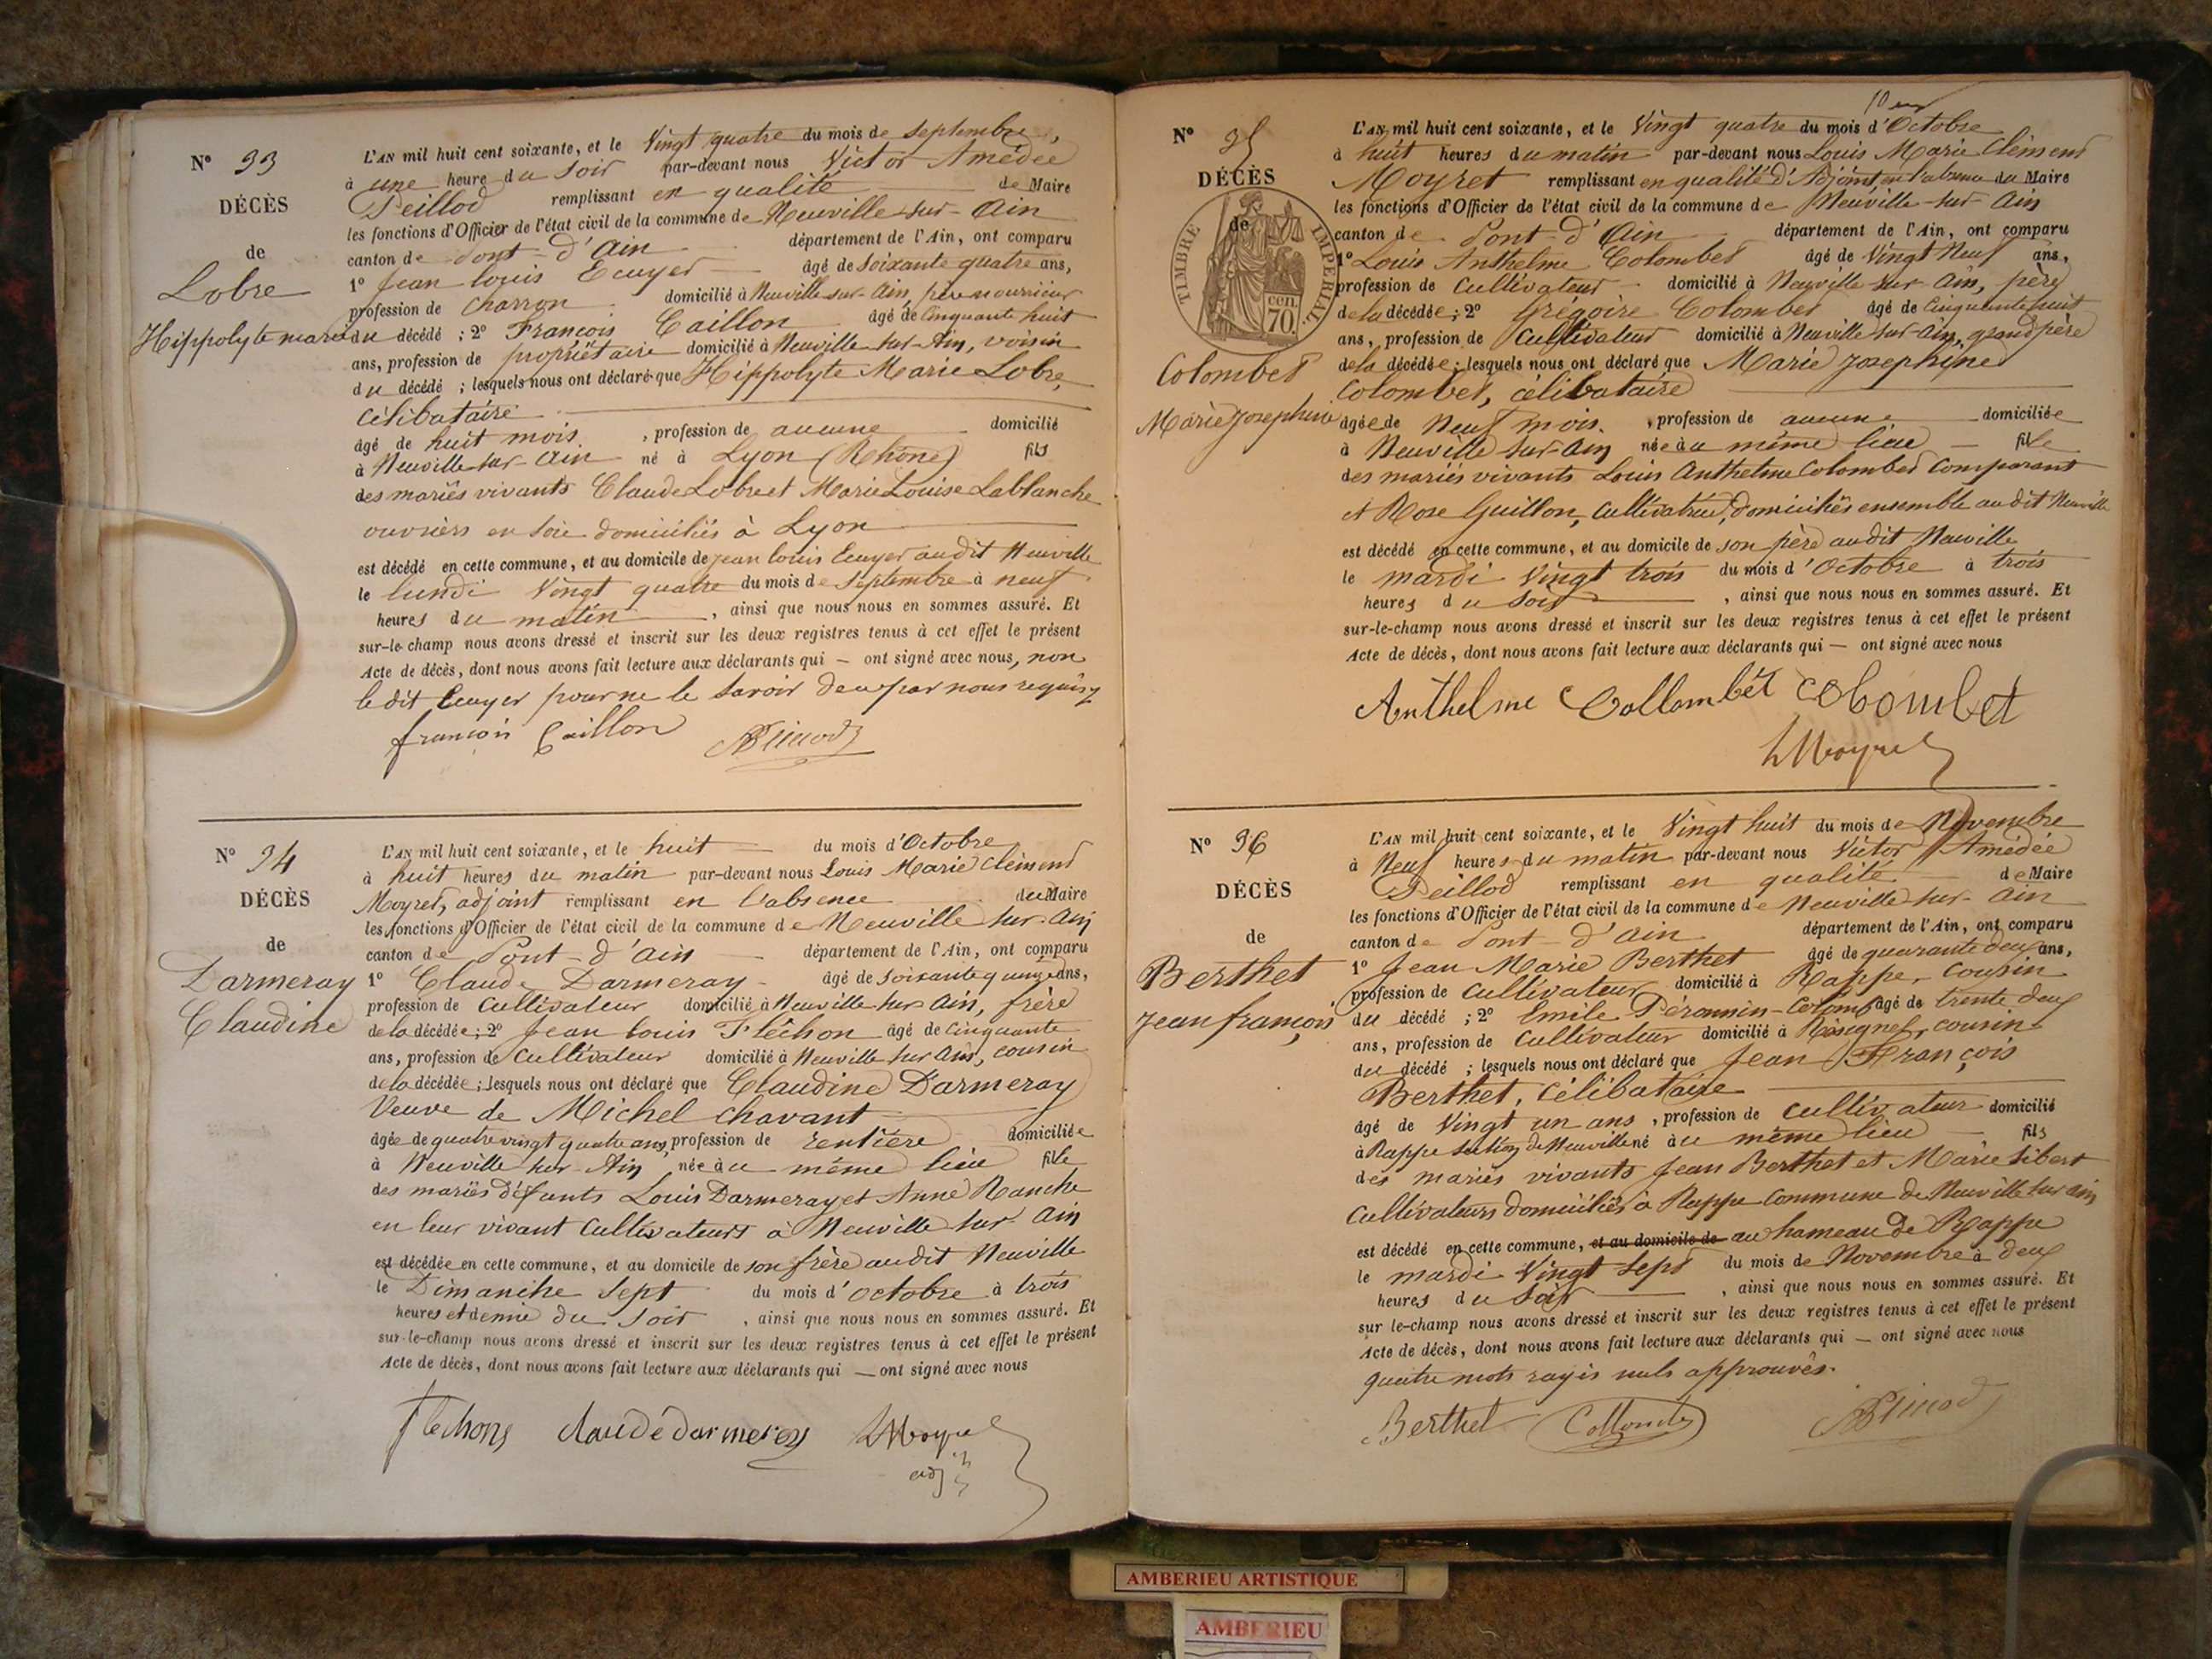 N° 33
DÉCÈS
de
Lobre
Hippolyte marie
L'AN mil huit cent soixante, et le Vingt quatre du mois de Septembre,
à une heure du Soir par-devant nous Victor Amédée
Peillod remplissant en qualité de Maire
les fonctions d'Officier de l'état civil de la commune de Neuville sur-Ain
canton de Pont-d'Ain département de l'Ain, ont comparu
1° Jean louis Ecuyer âgé de Soixante quatre ans,
profession de Charron domicilié à Neuville sur-Ain, père nourricier
du décédé ; 2° François Caillon âgé de Cinquante huit
ans, profession de propriétaire domicilié à Neuville sur-Ain, voisin
du décédé ; lesquels nous ont déclaré que Hippolyte Marie Lobre,
Célibataire
âgé de huit mois, profession de aucune domicilié
à Neuville sur-Ain né à Lyon (Rhône) fils
des mariés vivants Claude Lobre et Marie Louise Lablanche
ouvriers en Soie domiciliés à Lyon
est décédé en cette commune, et au domicile de jean louis Ecuyer audit Neuville
le lundi Vingt quatre du mois de Septembre à neuf
heures du matin, ainsi que nous nous en sommes assuré. Et
sur-le-champ nous avons dressé et inscrit sur les deux registres tenus à cet effet le présent
Acte de décès, dont nous avons fait lecture aux déclarants qui — ont signé avec nous, non
le dit Ecuyer pour ne le Savoir de ce par nous requis
françois Caillon
N° 34
DÉCÈS
de
Darmeray
Claudine
L'AN mil huit cent soixante, et le huit du mois d'Octobre
à huit heures du matin par-devant nous Louis Marie Clément
Moyret, adjoint remplissant en l'absence du Maire
les fonctions d'Officier de l'état civil de la commune de Neuville sur-Ain
canton de Pont-d'Ain département de l'Ain, ont comparu
1° Claude Darmeray âgé de Soixante quinze ans,
profession de Cultivateur domicilié à Neuville sur Ain, frère
de la décédée ; 2° Jean louis Fléchon âgé de Cinquante
ans, profession de Cultivateur domicilié à Neuville sur Ain, cousin
de la décédée ; lesquels nous ont déclaré que Claudine Darmeray
Veuve de Michel Chavant
âgée de quatre vingt quatre ans, profession de rentière domiciliée
à Neuville sur-Ain, née au même lieu fille
des mariés défunts Louis Darmeray et Anne Ranche
en leur vivant Cultivateurs à Neuville sur Ain
est décédée en cette commune, et au domicile de son frère audit Neuville
le Dimanche Sept du mois d'octobre à trois
heures et demie du Soir, ainsi que nous nous en sommes assuré. Et
sur-le-champ nous avons dressé et inscrit sur les deux registres tenus à cet effet le présent
Acte de décès, dont nous avons fait lecture aux déclarants qui — ont signé avec nous
flechons claude darmeray LMoyret
adj
N° 35
DÉCÈS
de
TIMBRE IMPERIAL
70 cen.
Colombet
Marie Josephine
L'AN mil huit cent soixante, et le Vingt quatre du mois d'Octobre
à huit heures du matin par-devant nous Louis Marie Clément
Moyret remplissant en qualité d'Adjoint en l'absence du Maire
les fonctions d'Officier de l'état civil de la commune de Neuville-sur Ain
canton de Pont-d'Ain département de l'Ain, ont comparu
1° Louis Anthelme Colombet âgé de Vingt Neuf ans,
profession de Cultivateur domicilié à Neuville sur-Ain, père
de la décédée ; 2° Grégoire Colombet âgé de Cinquante huit
ans, profession de Cultivateur domicilié à Neuville sur-Ain, grand père
de la décédée ; lesquels nous ont déclaré que Marie Josephine
Colombet, célibataire
âgée de Neuf mois, profession de aucune domiciliée
à Neuville sur-Ain née au même lieu — fille
des mariés vivants Louis Anthelme Colombet Comparant
et Rose Guillon, Cultivatrice, domiciliés ensemble au dit Neuville
est décédé en cette commune, et au domicile de son père audit Neuville
le mardi Vingt trois du mois d'Octobre à trois
heures du Soir, ainsi que nous nous en sommes assuré. Et
sur-le-champ nous avons dressé et inscrit sur les deux registres tenus à cet effet le présent
Acte de décès, dont nous avons fait lecture aux déclarants qui — ont signé avec nous
Anthelme Collombét Colombet
LMoyret
N° 36
DÉCÈS
de
Berthet
Jean françois
L'AN mil huit cent soixante, et le Vingt huit du mois de Novembre
à Neuf heures du matin par-devant nous Victor Amédée
Peillod remplissant en qualité de Maire
les fonctions d'Officier de l'état civil de la commune de Neuville sur-Ain
canton de Pont-d'Ain département de l'Ain, ont comparu
1° Jean Marie Berthet âgé de quarante deux ans,
profession de Cultivateur domicilié à Rappe, Cousin
du décédé ; 2° Emile Péronnin-Colomb âgé de trente deux
ans, profession de Cultivateur domicilié à Résignel, cousin
du décédé ; lesquels nous ont déclaré que Jean François
Berthet, Célibataire
âgé de Vingt un ans, profession de Cultivateur domicilié
à Rappe Section de Neuville né au même lieu — fils
des mariés vivants Jean Berthet et Marie Sibert
Cultivateurs domiciliés à Rappe Commune de Neuville sur ain
est décédé en cette commune, et au domicile de au hameau de Rappe
le mardi Vingt Sept du mois de Novembre à deux
heures du Soir, ainsi que nous nous en sommes assuré. Et
sur le-champ nous avons dressé et inscrit sur les deux registres tenus à cet effet le présent
Acte de décès, dont nous avons fait lecture aux déclarants qui — ont signé avec nous
quatre mots rayés nuls approuvés.
Berthet
AMBERIEU ARTISTIQUE
AMBERIEU